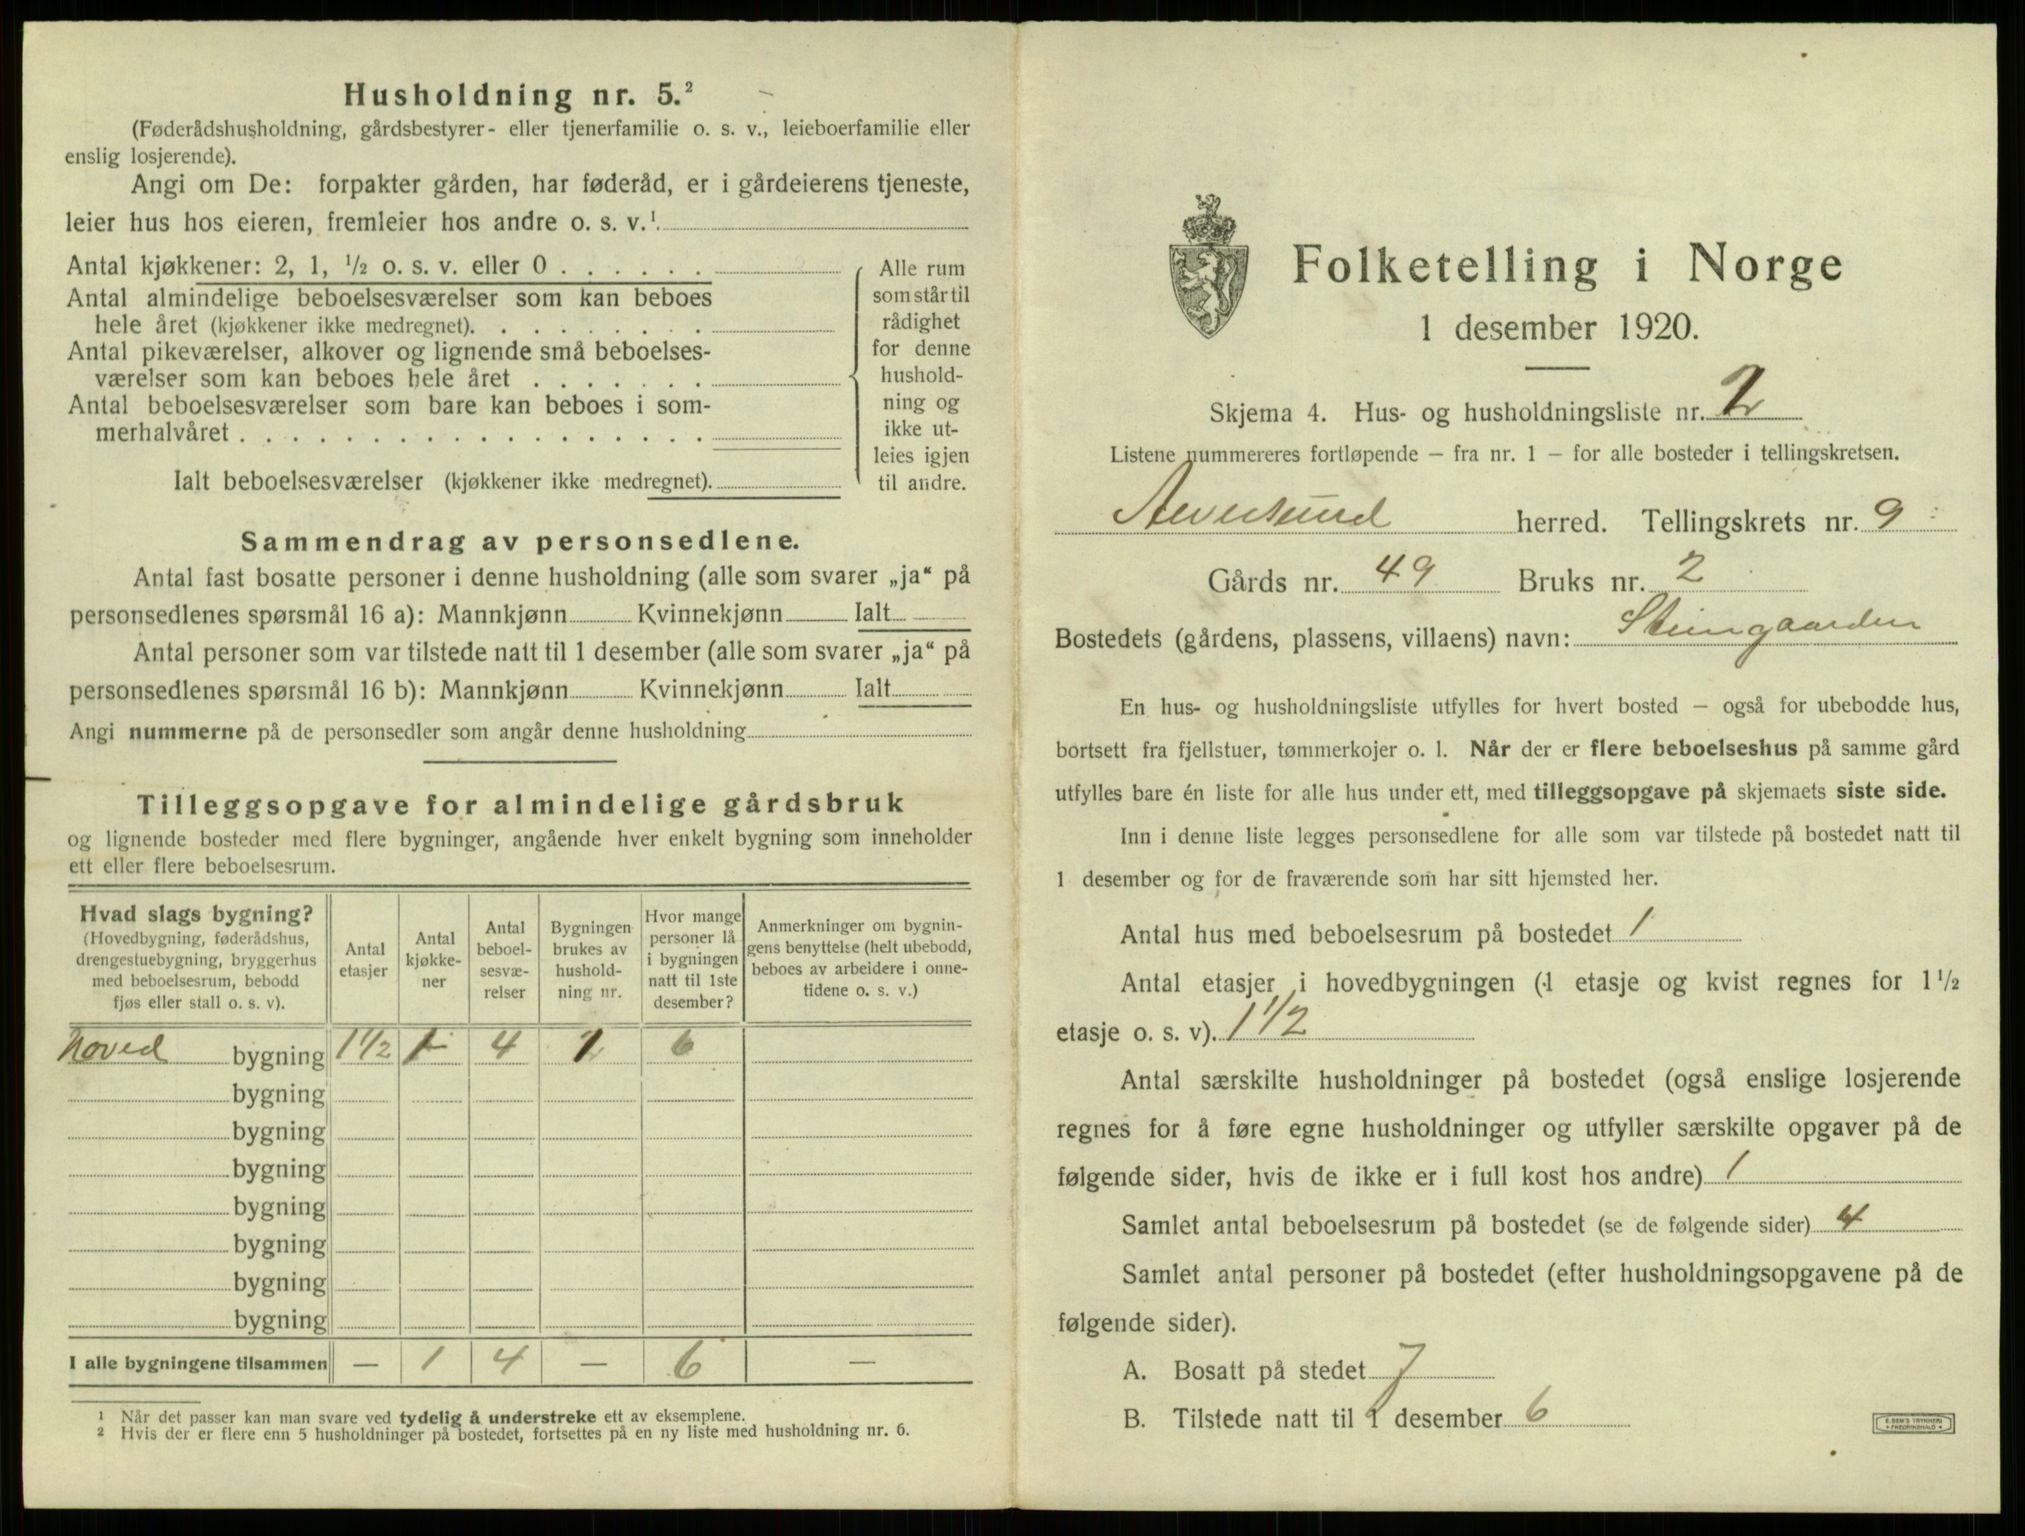 Husholdning nr. 5.²
(Føderådshusholdning, gårdsbestyrer- eller tjenerfamilie o. s. v., leieboerfamilie eller
enslig losjerende).
Angi om De: forpakter gården, har føderåd, er i gårdeierens tjeneste,
leier hus hos eieren, fremleier hos andre o. s. v.¹
Antal kjøkkener: 2, 1, ½ o. s. v. eller 0
Antal almindelige beboelsesværelser som kan beboes
hele året (kjøkkener ikke medregnet).
Antal pikeværelser, alkover og lignende små beboelses-
værelser som kan beboes hele året
Antal beboelsesværelser som bare kan beboes i som-
merhalvåret
Ialt beboelsesværelser (kjøkkener ikke medregnet).
Alle rum
som står til
rådighet
for denne
hushold-
ning og
ikke ut-
leies igjen
til andre.
Sammendrag av personsedlene.
Antal fast bosatte personer i denne husholdning (alle som svarer „ja“ på
personsedlenes spørsmål 16 a): Mannkjønn Kvinnekjønn Ialt
Antal personer som var tilstede natt til 1 desember (alle som svarer „ja“ på
personsedlenes spørsmål 16 b): Mannkjønn Kvinnekjønn Ialt
Angi nummerne på de personsedler som angår denne husholdning
Tilleggsopgave for almindelige gårdsbruk
og lignende bosteder med flere bygninger, angående hver enkelt bygning som inneholder
ett eller flere beboelsesrum.
Hvad slags bygning?
(Hovedbygning, føderådshus,
drengestuebygning, bryggerhus
med beboelsesrum, bebodd
fjøs eller stall o. s. v).
Antal
etasjer
Antal
kjøkke-
ner
Antal
beboel-
sesvæ-
relser
Bygningen
brukes av
hushold-
ning nr.
Hvor mange
personer lå
i bygningen
natt til 1ste
desember?
Anmerkninger om bygnin-
gens benyttelse (helt ubebodd,
beboes av arbeidere i onne-
tidene o. s. v.)
Hoved bygning 1½ 1 4 1 6
bygning
bygning
bygning
bygning
bygning
bygning
bygning
I alle bygningene tilsammen — 1 4 — 6 —
¹ Når det passer kan man svare ved tydelig å understreke ett av eksemplene.
² Hvis der er flere enn 5 husholdninger på bostedet, fortsettes på en ny liste med husholdning nr. 6.
Folketelling i Norge
1 desember 1920.
Skjema 4. Hus- og husholdningsliste nr. 2
Listene nummereres fortløpende — fra nr. 1 — for alle bosteder i tellingskretsen.
Alversund herred. Tellingskrets nr. 9
Gårds nr. 49 Bruks nr. 2
Bostedets (gårdens, plassens, villaens) navn: Steingaarden
En hus- og husholdningsliste utfylles for hvert bosted — også for ubebodde hus,
bortsett fra fjellstuer, tømmerkojer o. l. Når der er flere beboelseshus på samme gård
utfylles bare én liste for alle hus under ett, med tilleggsopgave på skjemaets siste side.
Inn i denne liste legges personsedlene for alle som var tilstede på bostedet natt til
1 desember og for de fraværende som har sitt hjemsted her.
Antal hus med beboelsesrum på bostedet 1
Antal etasjer i hovedbygningen (1 etasje og kvist regnes for 1½
etasje o. s. v). 1½
Antal særskilte husholdninger på bostedet (også enslige losjerende
regnes for å føre egne husholdninger og utfyller særskilte opgaver på de
følgende sider, hvis de ikke er i full kost hos andre) 1
Samlet antal beboelsesrum på bostedet (se de følgende sider) 4
Samlet antal personer på bostedet (efter husholdningsopgavene på de
følgende sider).
A. Bosatt på stedet 7
B. Tilstede natt til 1 desember 6
E. SEM'S TRYKKERI
FREDRIKSHALD